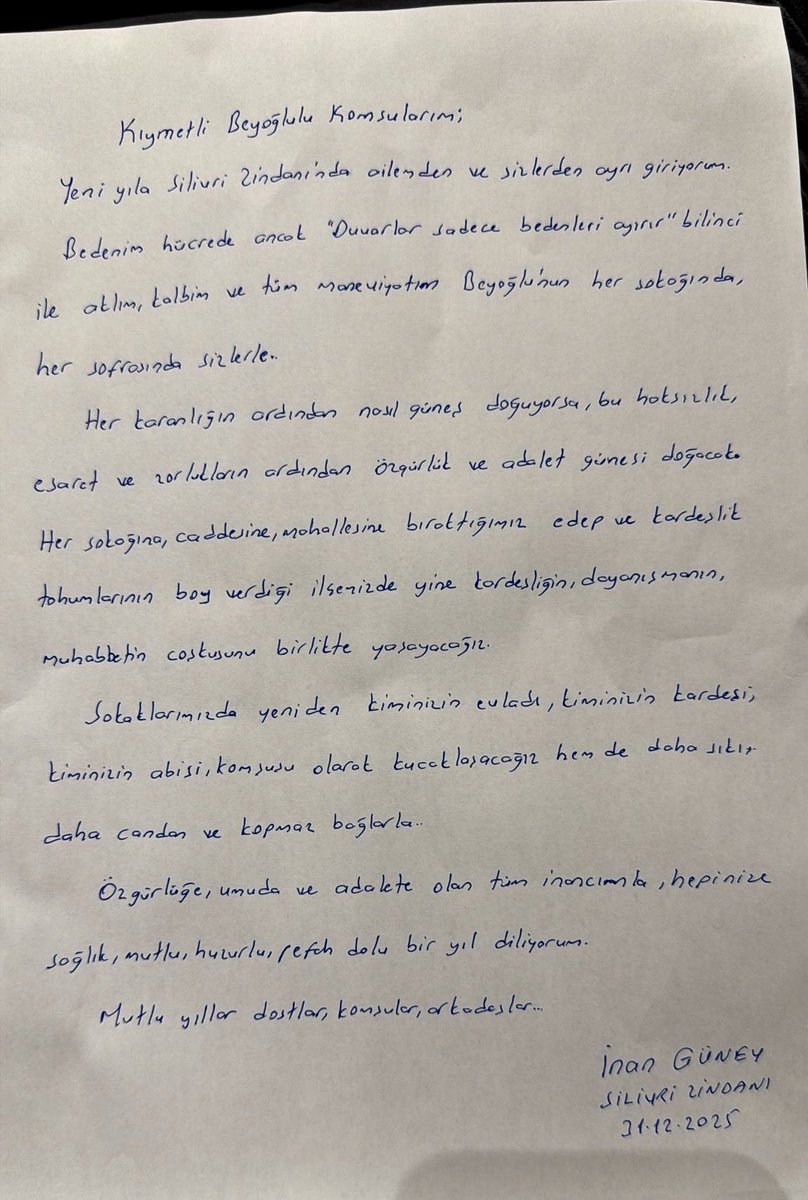 Kıymetli Beyoğlulu Komşularım;
Yeni yıla Silivri Zindanı'nda ailemden ve sizlerden ayrı giriyorum.
Bedenim hücrede ancak "Duvarlar sadece bedenleri ayırır" bilinci
ile aklım, kalbim ve tüm maneviyatım Beyoğlu'nun her sokağında,
her sofrasında sizlerle..
Her karanlığın ardından nasıl güneş doğuyorsa, bu haksızlık,
esaret ve zorlukların ardından özgürlük ve adalet güneşi doğacak.
Her sokağına, caddesine, mahallesine bıraktığımız edep ve kardeşlik
tohumlarının boy verdiği ilçemizde yine kardeşliğin, dayanışmanın,
muhabbetin coşkusunu birlikte yaşayacağız.
Sokaklarımızda yeniden kiminizin evladı, kiminizin kardeşi,
kiminizin abisi, komşusu olarak kucaklaşacağız hem de daha sıkı,
daha candan ve kopmaz bağlarla..
Özgürlüğe, umuda ve adalete olan tüm inancımla, hepinize
sağlık, mutlu, huzurlu, refah dolu bir yıl diliyorum.
Mutlu yıllar dostlar, komşular, arkadaşlar...
İnan GÜNEY
SİLİVRİ ZİNDANI
31.12.2025